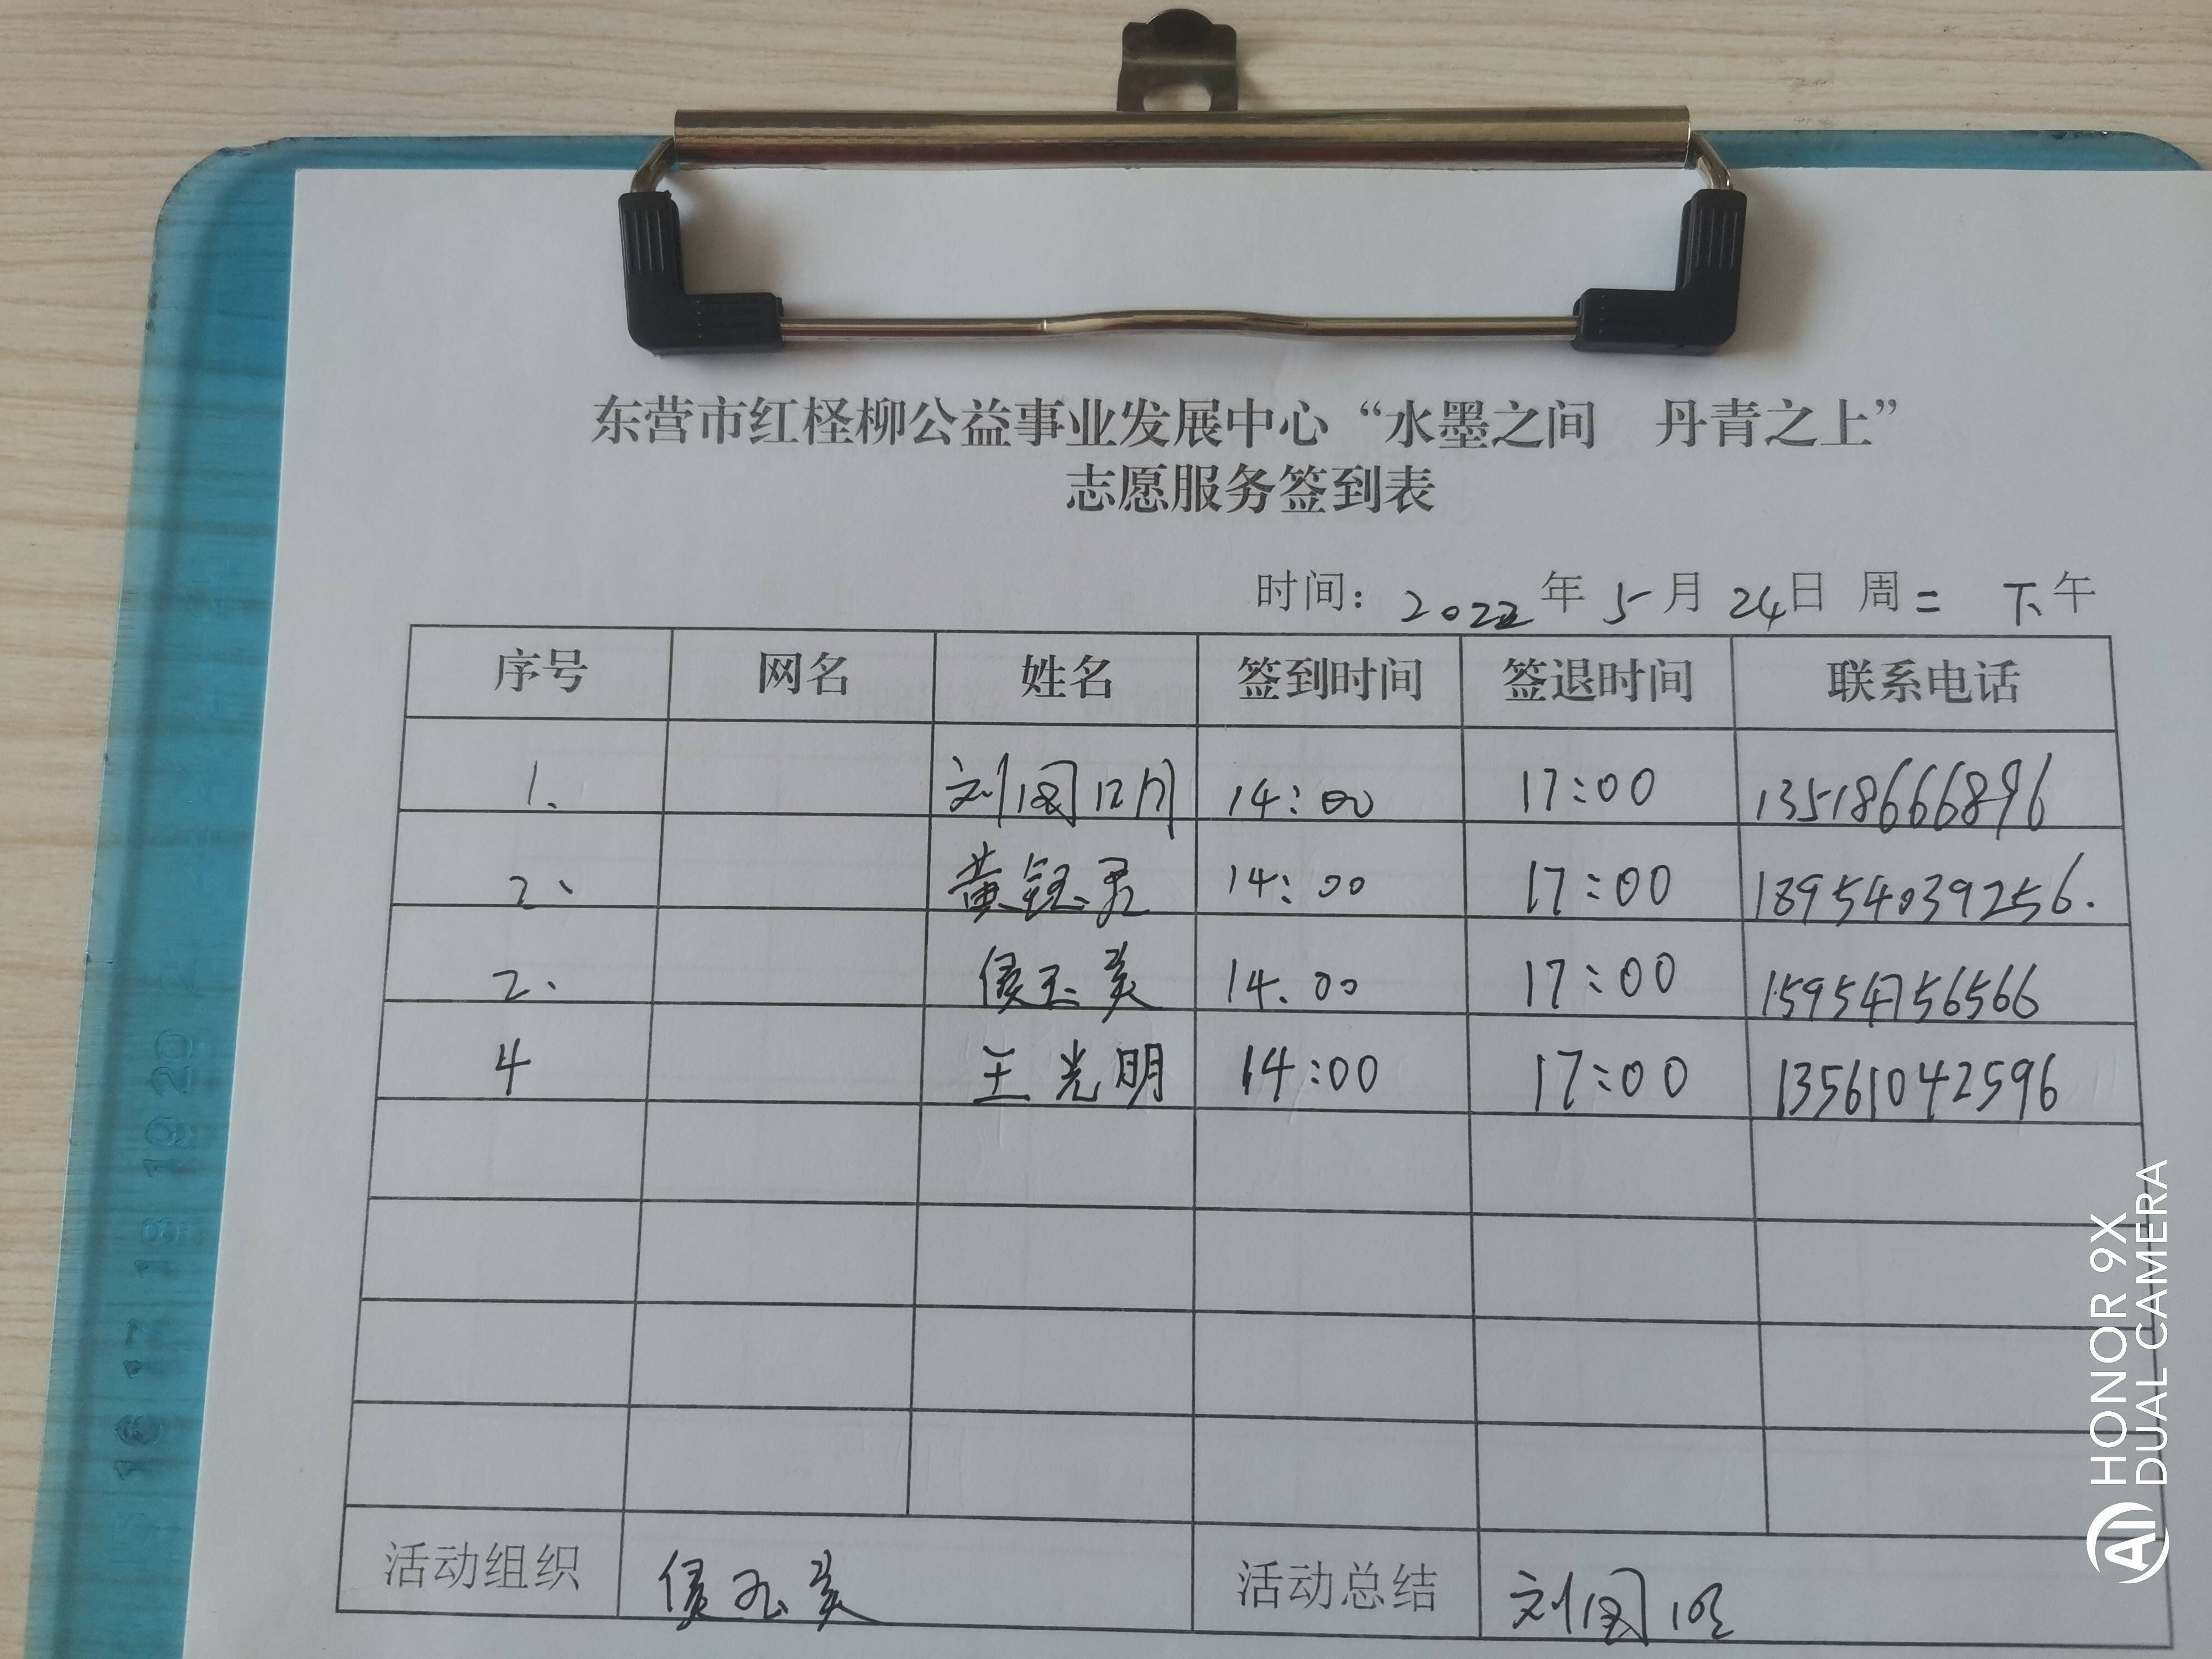 东营市红柽柳公益事业发展中心“水墨之间 丹青之上”
志愿服务签到表
时间： 2022 年 5 月 24 日 周二 下午
序号 网名 姓名 签到时间 签退时间 联系电话
1、 刘国明 14：00 17：00 13518666896
2、 黄钰君 14：00 17：00 18954039256.
2、 侯玉美 14.00 17：00 15954756566
4 王光明 14:00 17:00 13561042596
活动组织 侯玉美 活动总结 刘国明
16 17 18 19 20
HONOR 9X
AI DUAL CAMERA